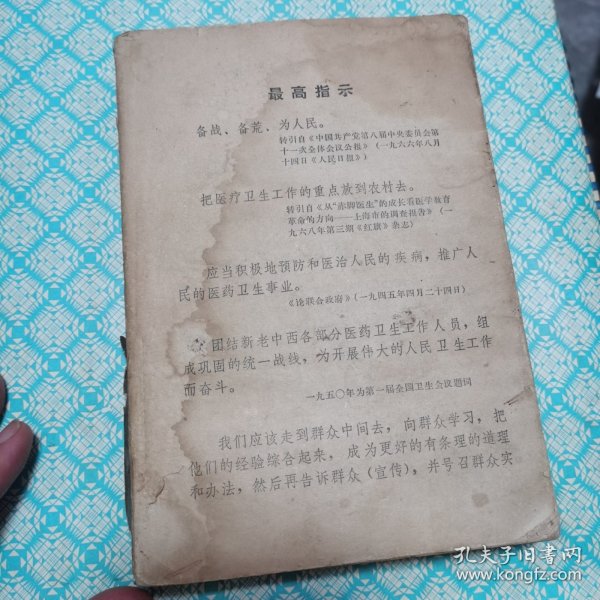 最高指示
备战、备荒、为人民。
转引自《中国共产党第八届中央委员会第
十一次全体会议公报》（一九六六年八月
十四日《人民日报》）
把医疗卫生工作的重点放到农村去。
转引自《从“赤脚医生”的成长看医学教育
革命的方向——上海市的调查报告》（一
九六八年第三期《红旗》杂志）
应当积极地预防和医治人民的疾病，推广人
民的医药卫生事业。
《论联合政府》（一九四五年四月二十四日）
团结新老中西各部分医药卫生工作人员，组
成巩固的统一战线，为开展伟大的人民卫生工作
而奋斗。
一九五〇年为第一届全国卫生会议题词
我们应该走到群众中间去，向群众学习，把
他们的经验综合起来，成为更好的有条理的道理
和办法，然后再告诉群众（宣传），并号召群众实
孔夫子旧书网
www.kongfz.com